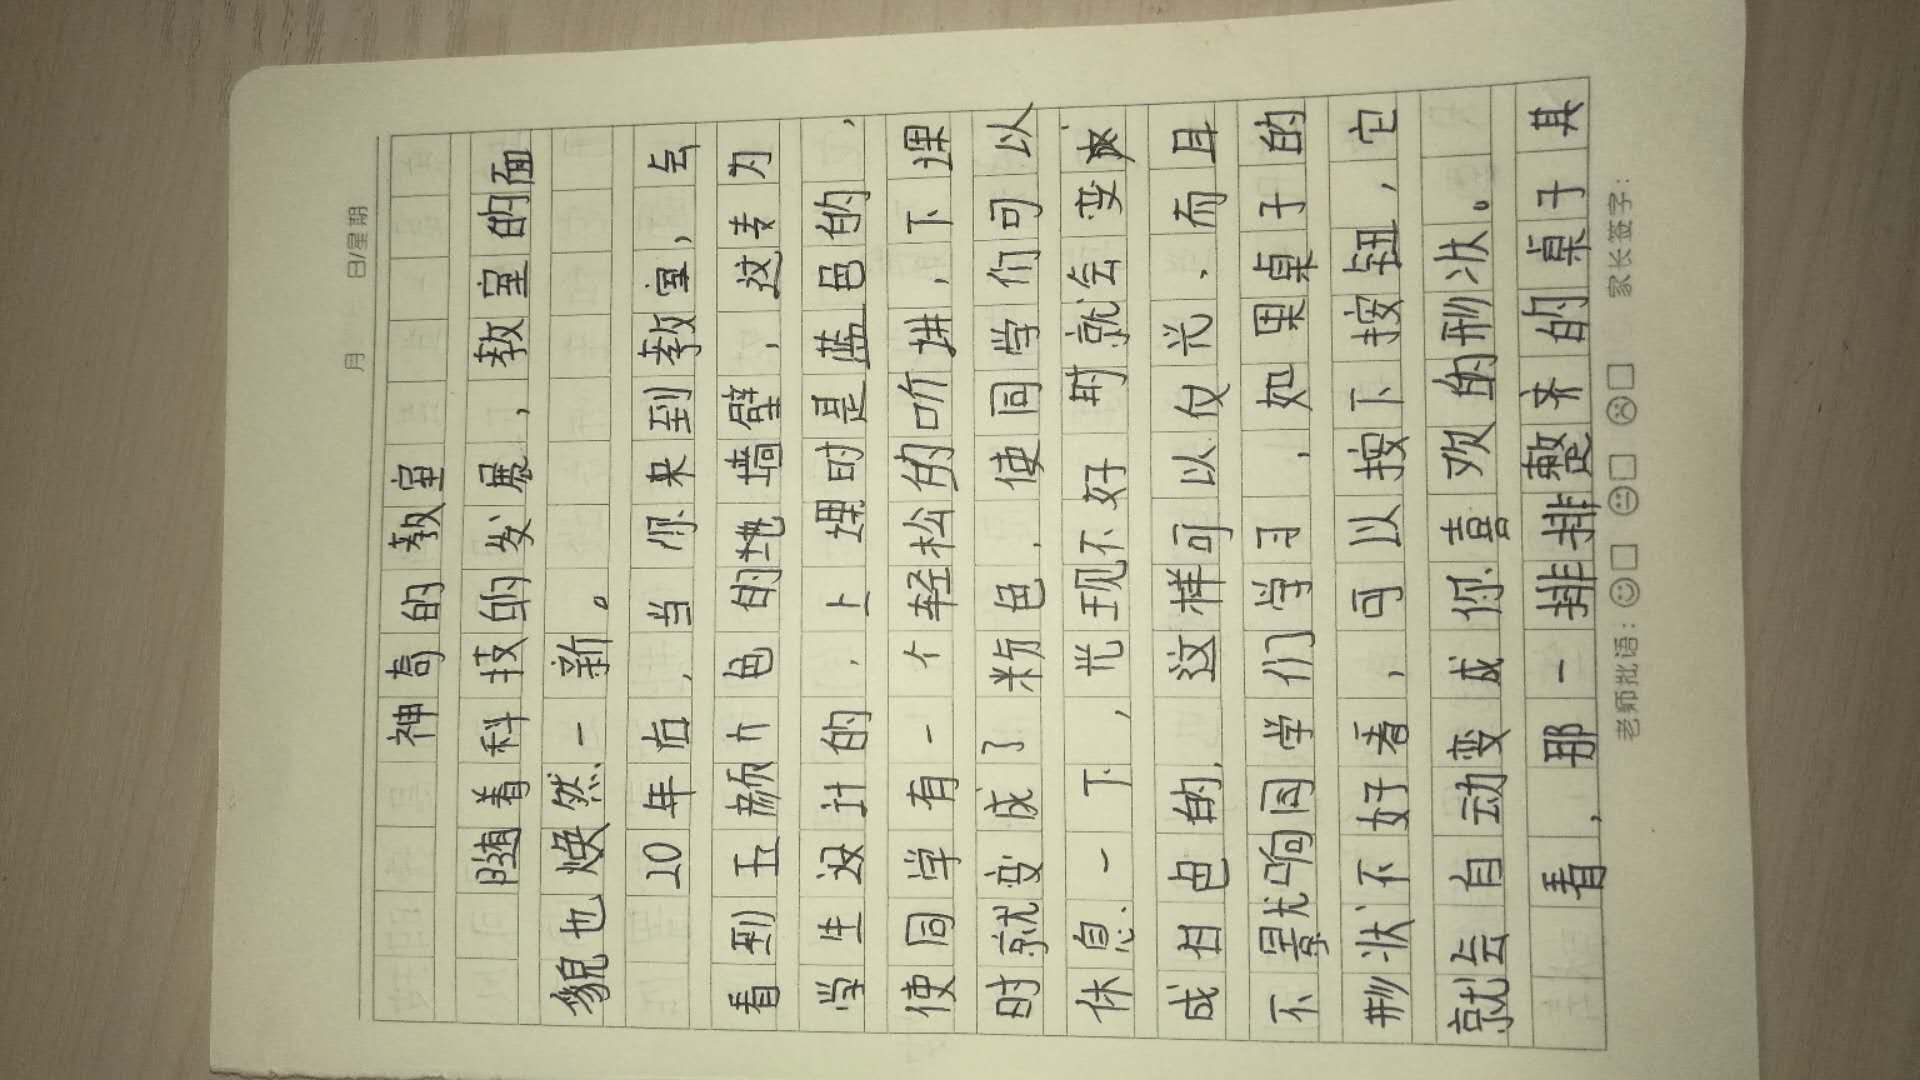 月 日/星期
神奇的教室
随着科技的发展，教室的面
貌也焕然一新。
10年后，当你来到教室，会
看到五颜六色的墙壁，这专为
学生设计的，上课时是蓝色的，
使同学有一个轻松的听讲，下课
时就变成了粉色，使同学们可以
休息一下，光现不好时就会变
成白色的，这样可以仅光，而且
不影响同学们学习，如果桌子的
形状不好看，可以按下按钮，它
就会自动变成你喜欢的形状。
看，那一排排整齐的桌子其
老师批语：☺□ 😐□ ☹□ 家长签字：